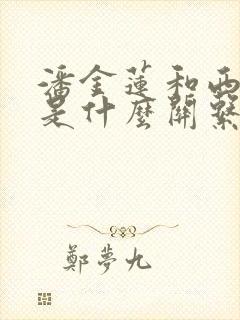 潘金蓮和西
是什麼關係
鄭夢九